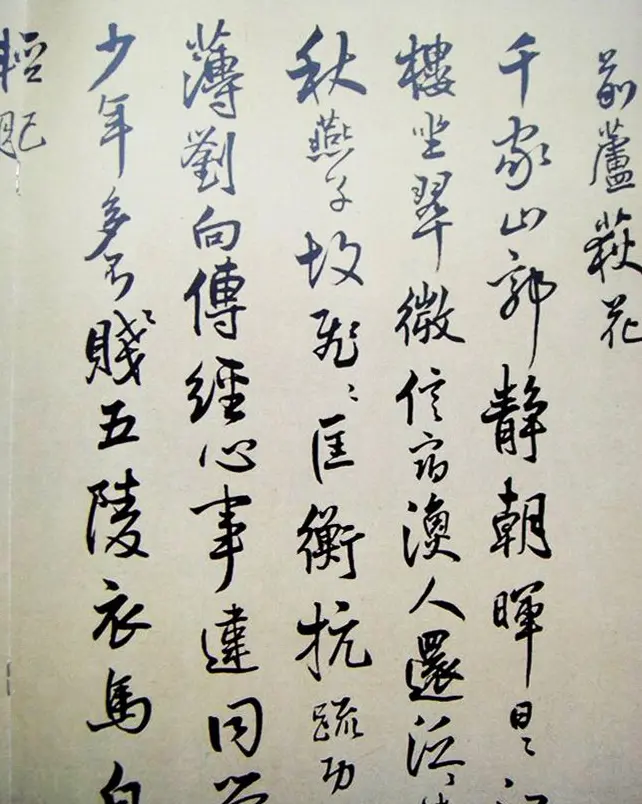 前蘆荻花
千家山郭靜朝暉日〻江
樓坐翠微信宿漁人還泛〻
秋燕子故飛〻匡衡抗疏功
薄劉向傳經心事違同學
少年多不賤五陵衣馬自
輕肥